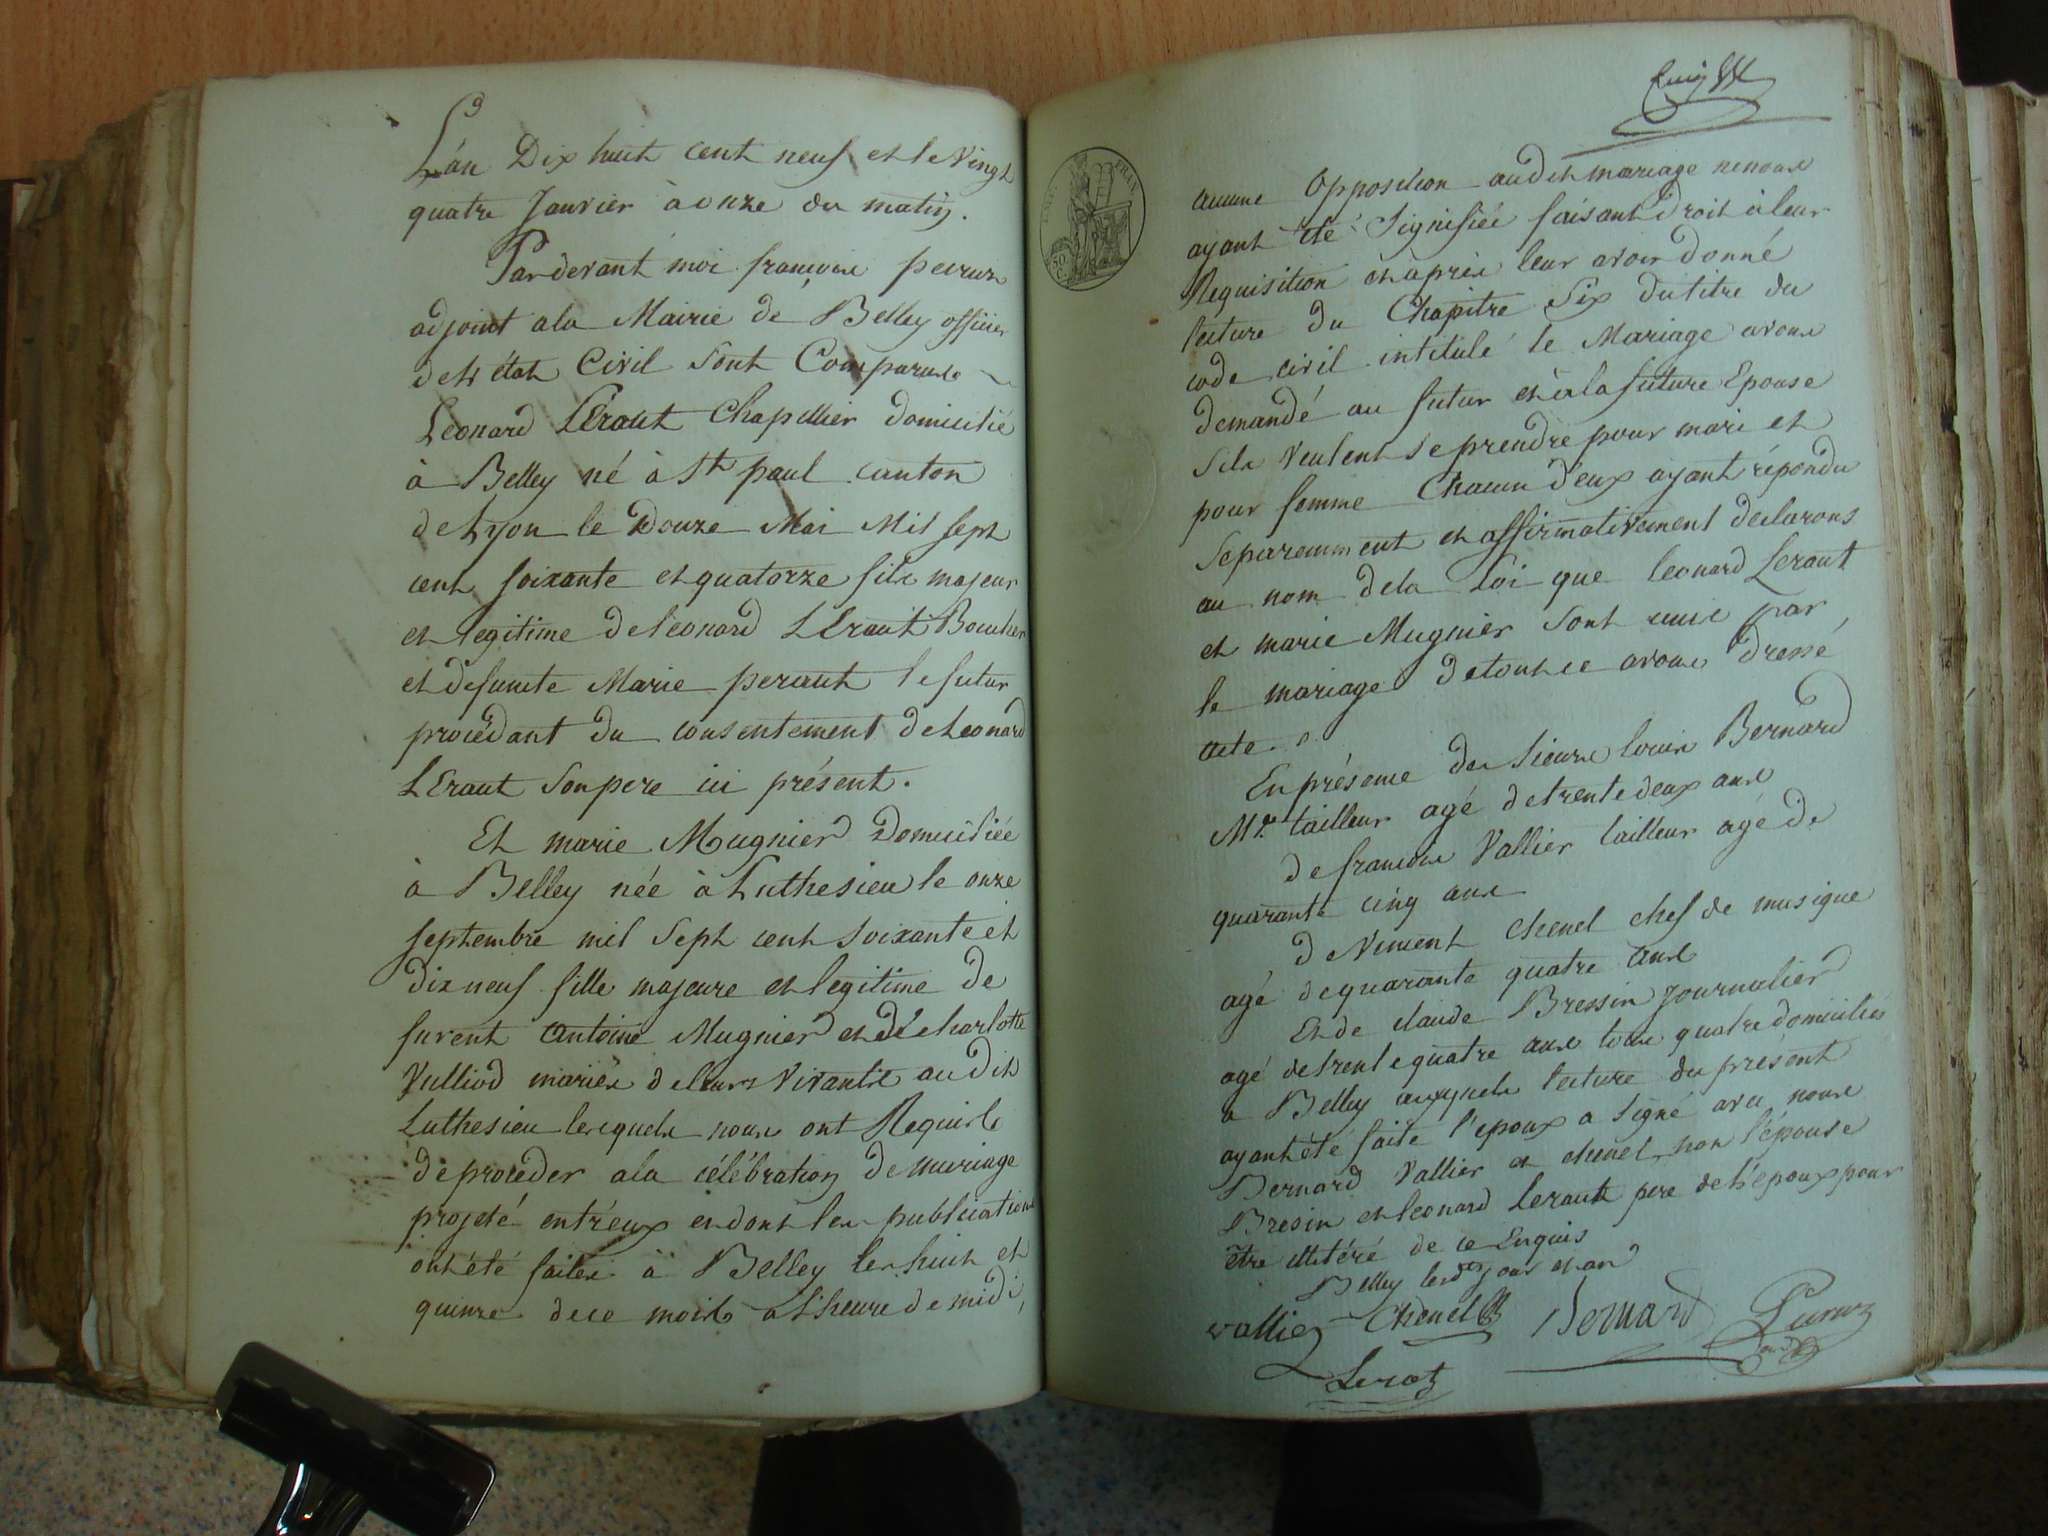 L'an Dix huit cent neuf et le Vingt
quatre Janvier à onze du matin.
Pardevant moi francois peirux
adjoint ala Mairie de Belley officier
de l'état Civil sont Comparus
Leonard LEraut Chapellier domicilié
à Belley né à St paul canton
de Lyon le Douze Mai Mil sept
cent soixante et quatorze fils majeur
et legitime de leonard LEraut Boucher
et defuncte Marie peraut le futur
procédant du consentement de Leonard
LEraut son pere ici présent.
Et marie Mugnier Domiciliée
à Belley née à Luthesieu le onze
septembre mil sept cent soixante et
dix neuf fille majeure et legitime de
furent antoine Mugnier et de charlotte
Vulliod mariés de leurs vivants au dit
Luthesieu lesquels nous ont Requis
de proceder ala célébration de mariage
projeté entr'eux et dont les publications
ont été faites à Belley les huit et
quinze de ce mois a l'heure de midi,
aucune Opposition audit mariage ne nous
ayant été signifiée faisant droit à leur
Requisition et après leur avoir donné
lecture du Chapitre Six du titre du
code civil intitulé le Mariage avons
demandé au futur et à la future Epouse
sils veulent se prendre pour mari et
pour femme Chacun d'eux ayant répondu
separemment et affirmativement declarons
au nom de la Loi que leonard Leraut
et marie Mugnier sont unis par
le mariage de tout ce avons dressé
acte.
En présence des sieurs louis Bernard
Mre tailleur agé de trente deux ans
de francois Vallier tailleur agé de
quarante cinq ans
de Vincent Chenel chef de musique
agé de quarante quatre ans
Et de claude Bressin Journalier
agé de trente quatre ans tous quatre domiciliés
a Belley auxquels lecture du présent
ayant été faite l'epoux a signé avec nous
Bernard Vallier et chenel, non l'épouse
Bresin et leonard Leraut pere de l'époux pour
être illitéré de ce Enquis
Belley lesdts jour et an
vallier Chenel Bernard
Lerot